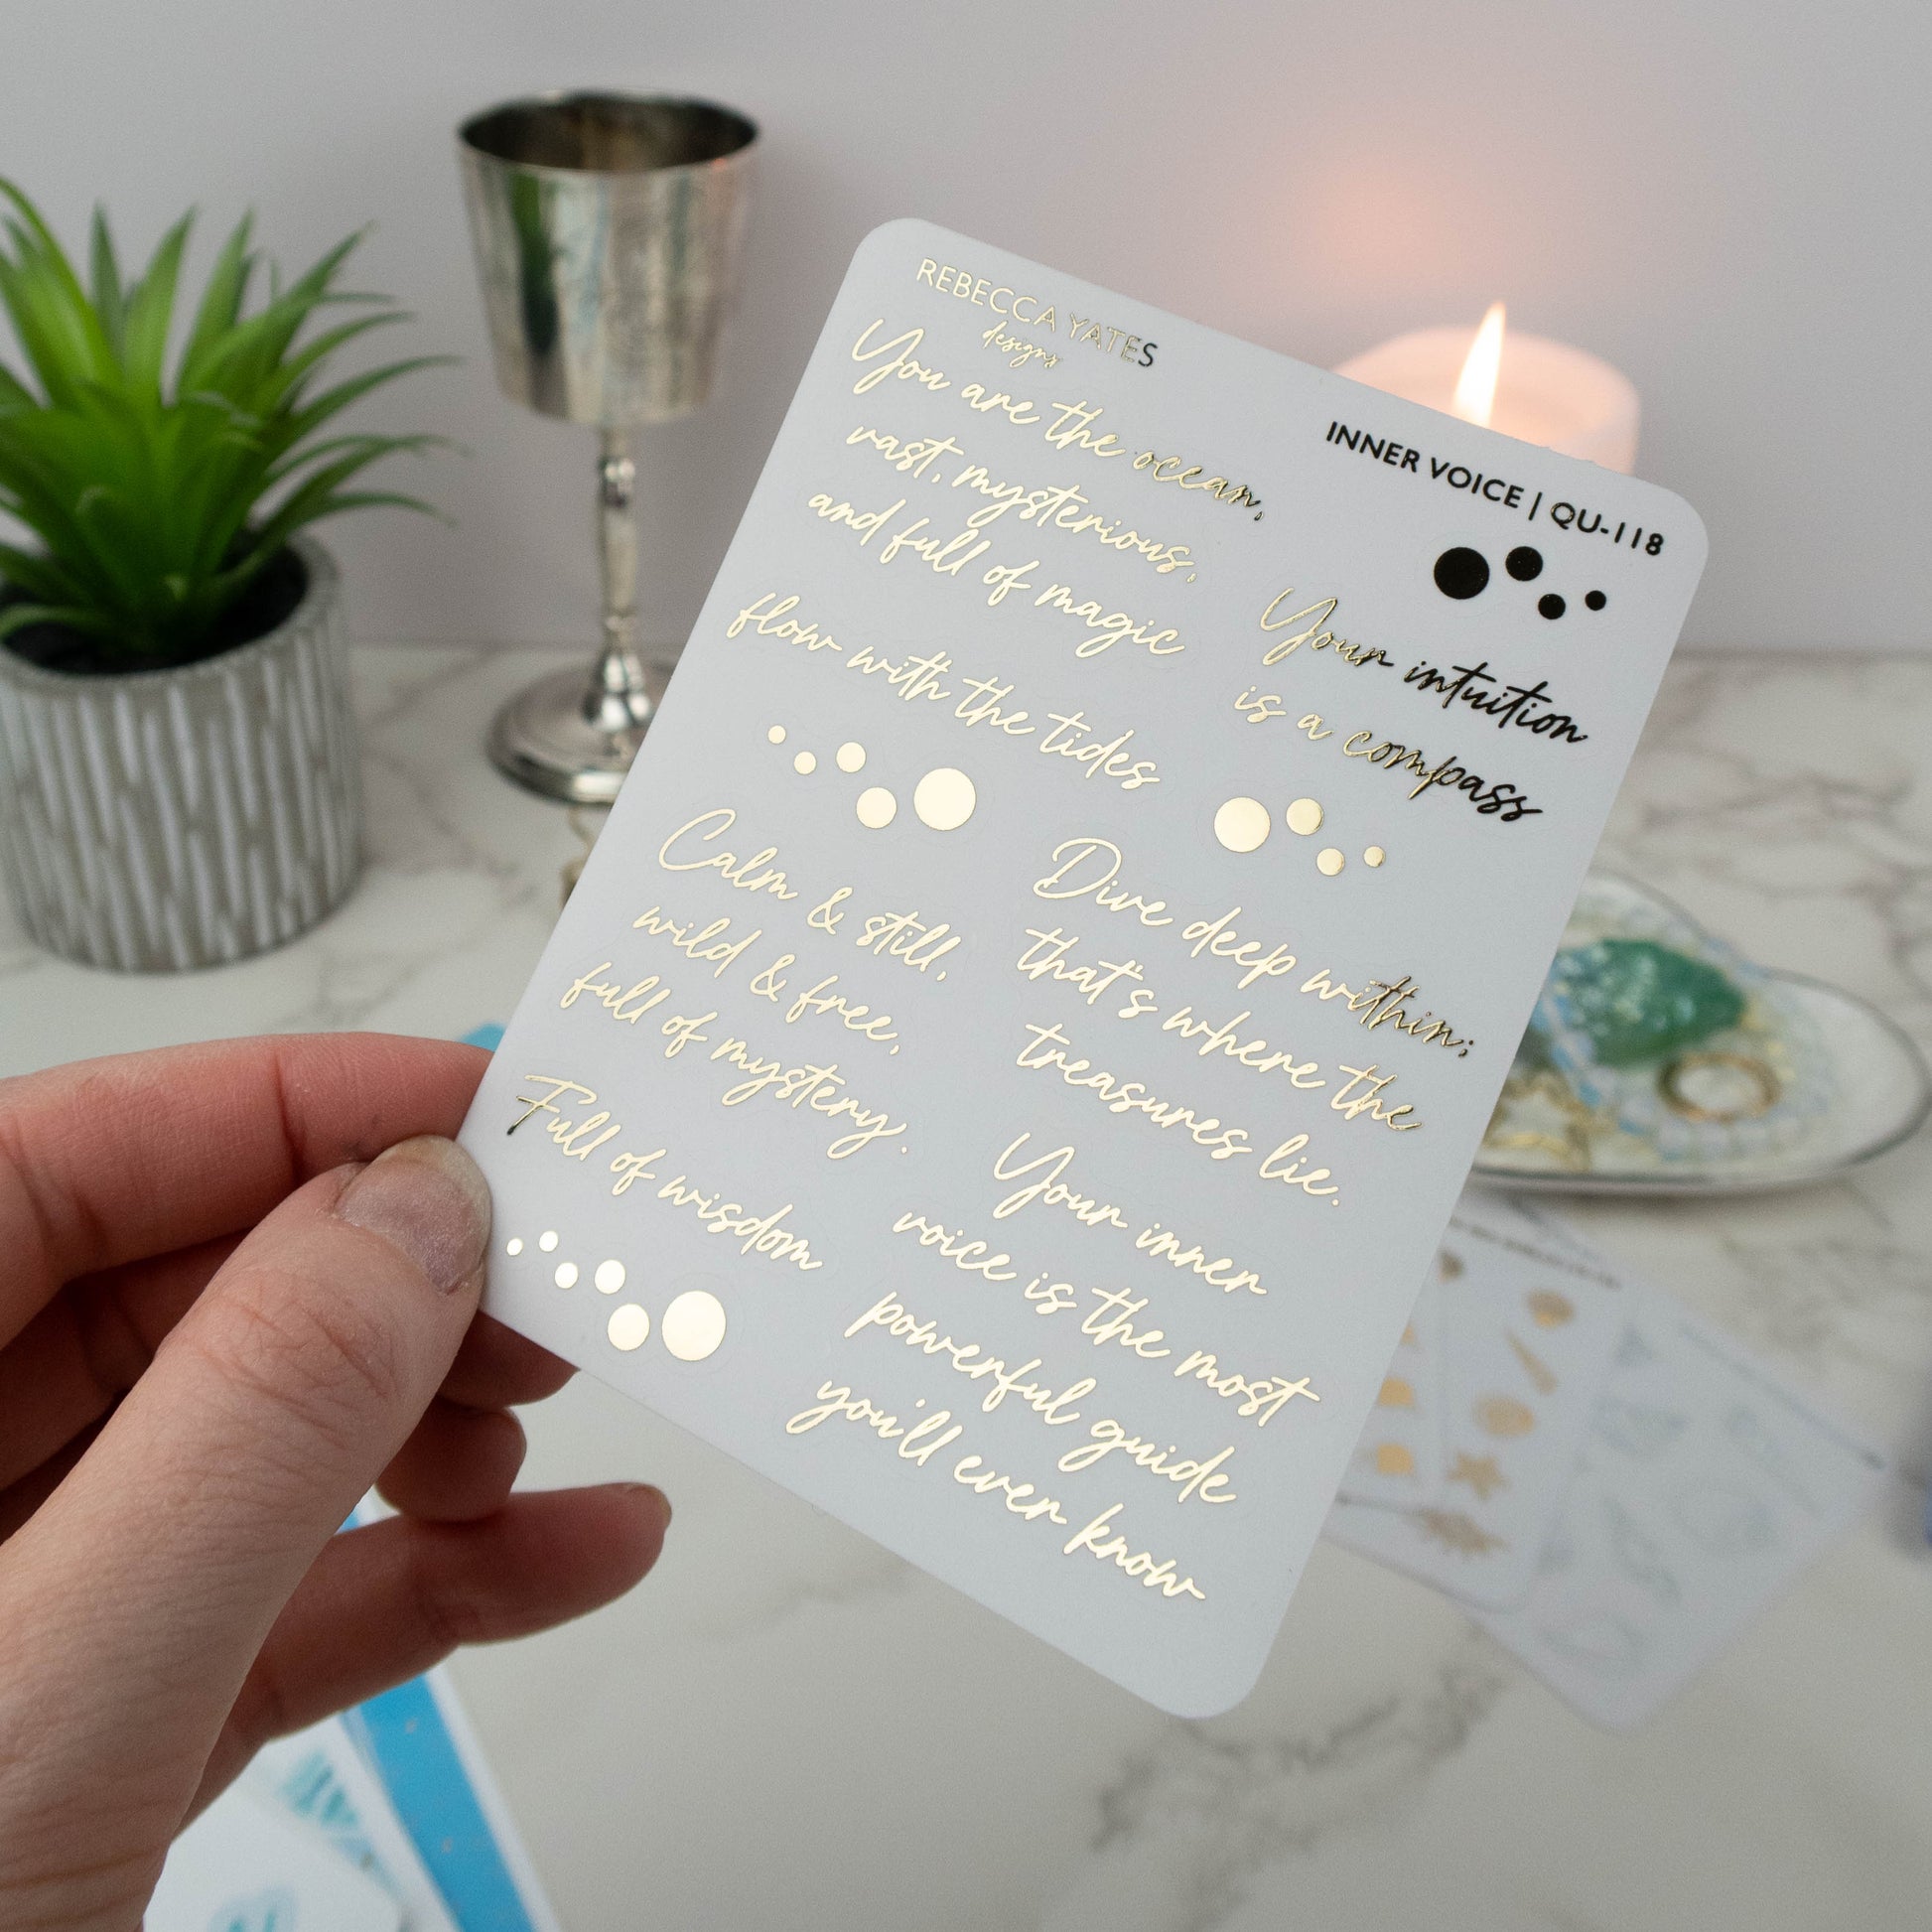 REBECCA YATES
designs
INNER VOICE | QU-118
You are the ocean,
vast, mysterious,
and full of magic
flow with the tides
Your intuition
is a compass
Calm & still,
wild & free,
full of mystery.
Full of wisdom
Dive deep within;
that's where the
treasures lie.
Your inner
voice is the most
powerful guide
you'll ever know